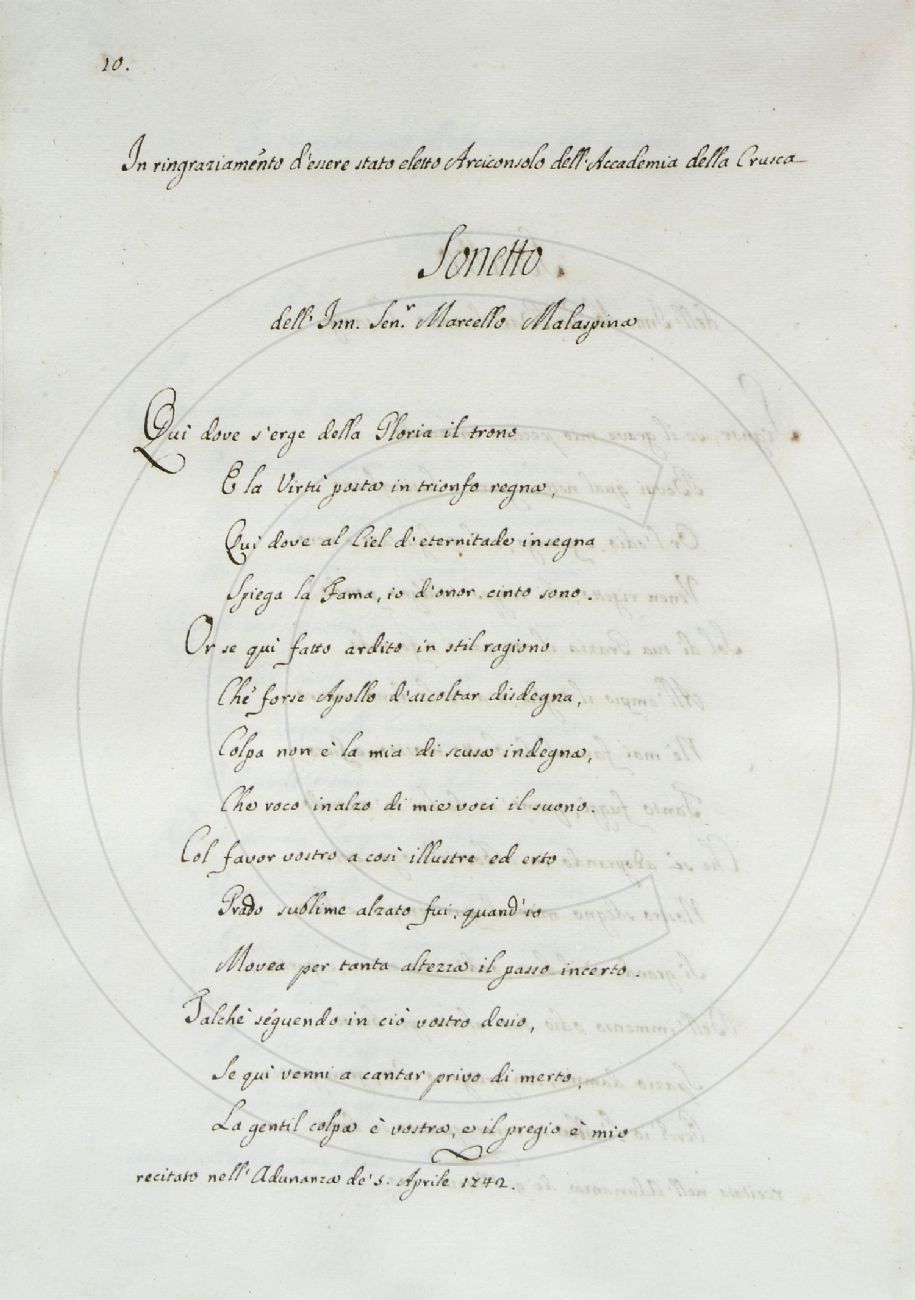 10.
In ringraziamento d'essere stato eletto Arciconsolo dell'Accademia della Crusca
Sonetto
dell'Inn. Sen.r Marcello Malaspina
Qui dove s'erge della Gloria il trono
E la Virtù posta in trionfo regna,
Qui dove al Ciel d'eternitade insegna
Spiega la Fama, io d'onor cinto sono.
Or se qui fatto ardito in stil ragiono
Che forse Apollo d'ascoltar disdegna,
Colpa non è la mia di scusa indegna,
Che roco inalzo di mie voci il suono.
Col favor vostro a così illustre ed erto
Grado sublime alzato fui, quand'io
Movea per tanta altezza il passo incerto.
Talchè seguendo in ciò vostro desio,
Se qui venni a cantar privo di merto,
La gentil colpa è vostra, e il pregio è mio
recitato nell'Adunanza de' 5. Aprile 1742.